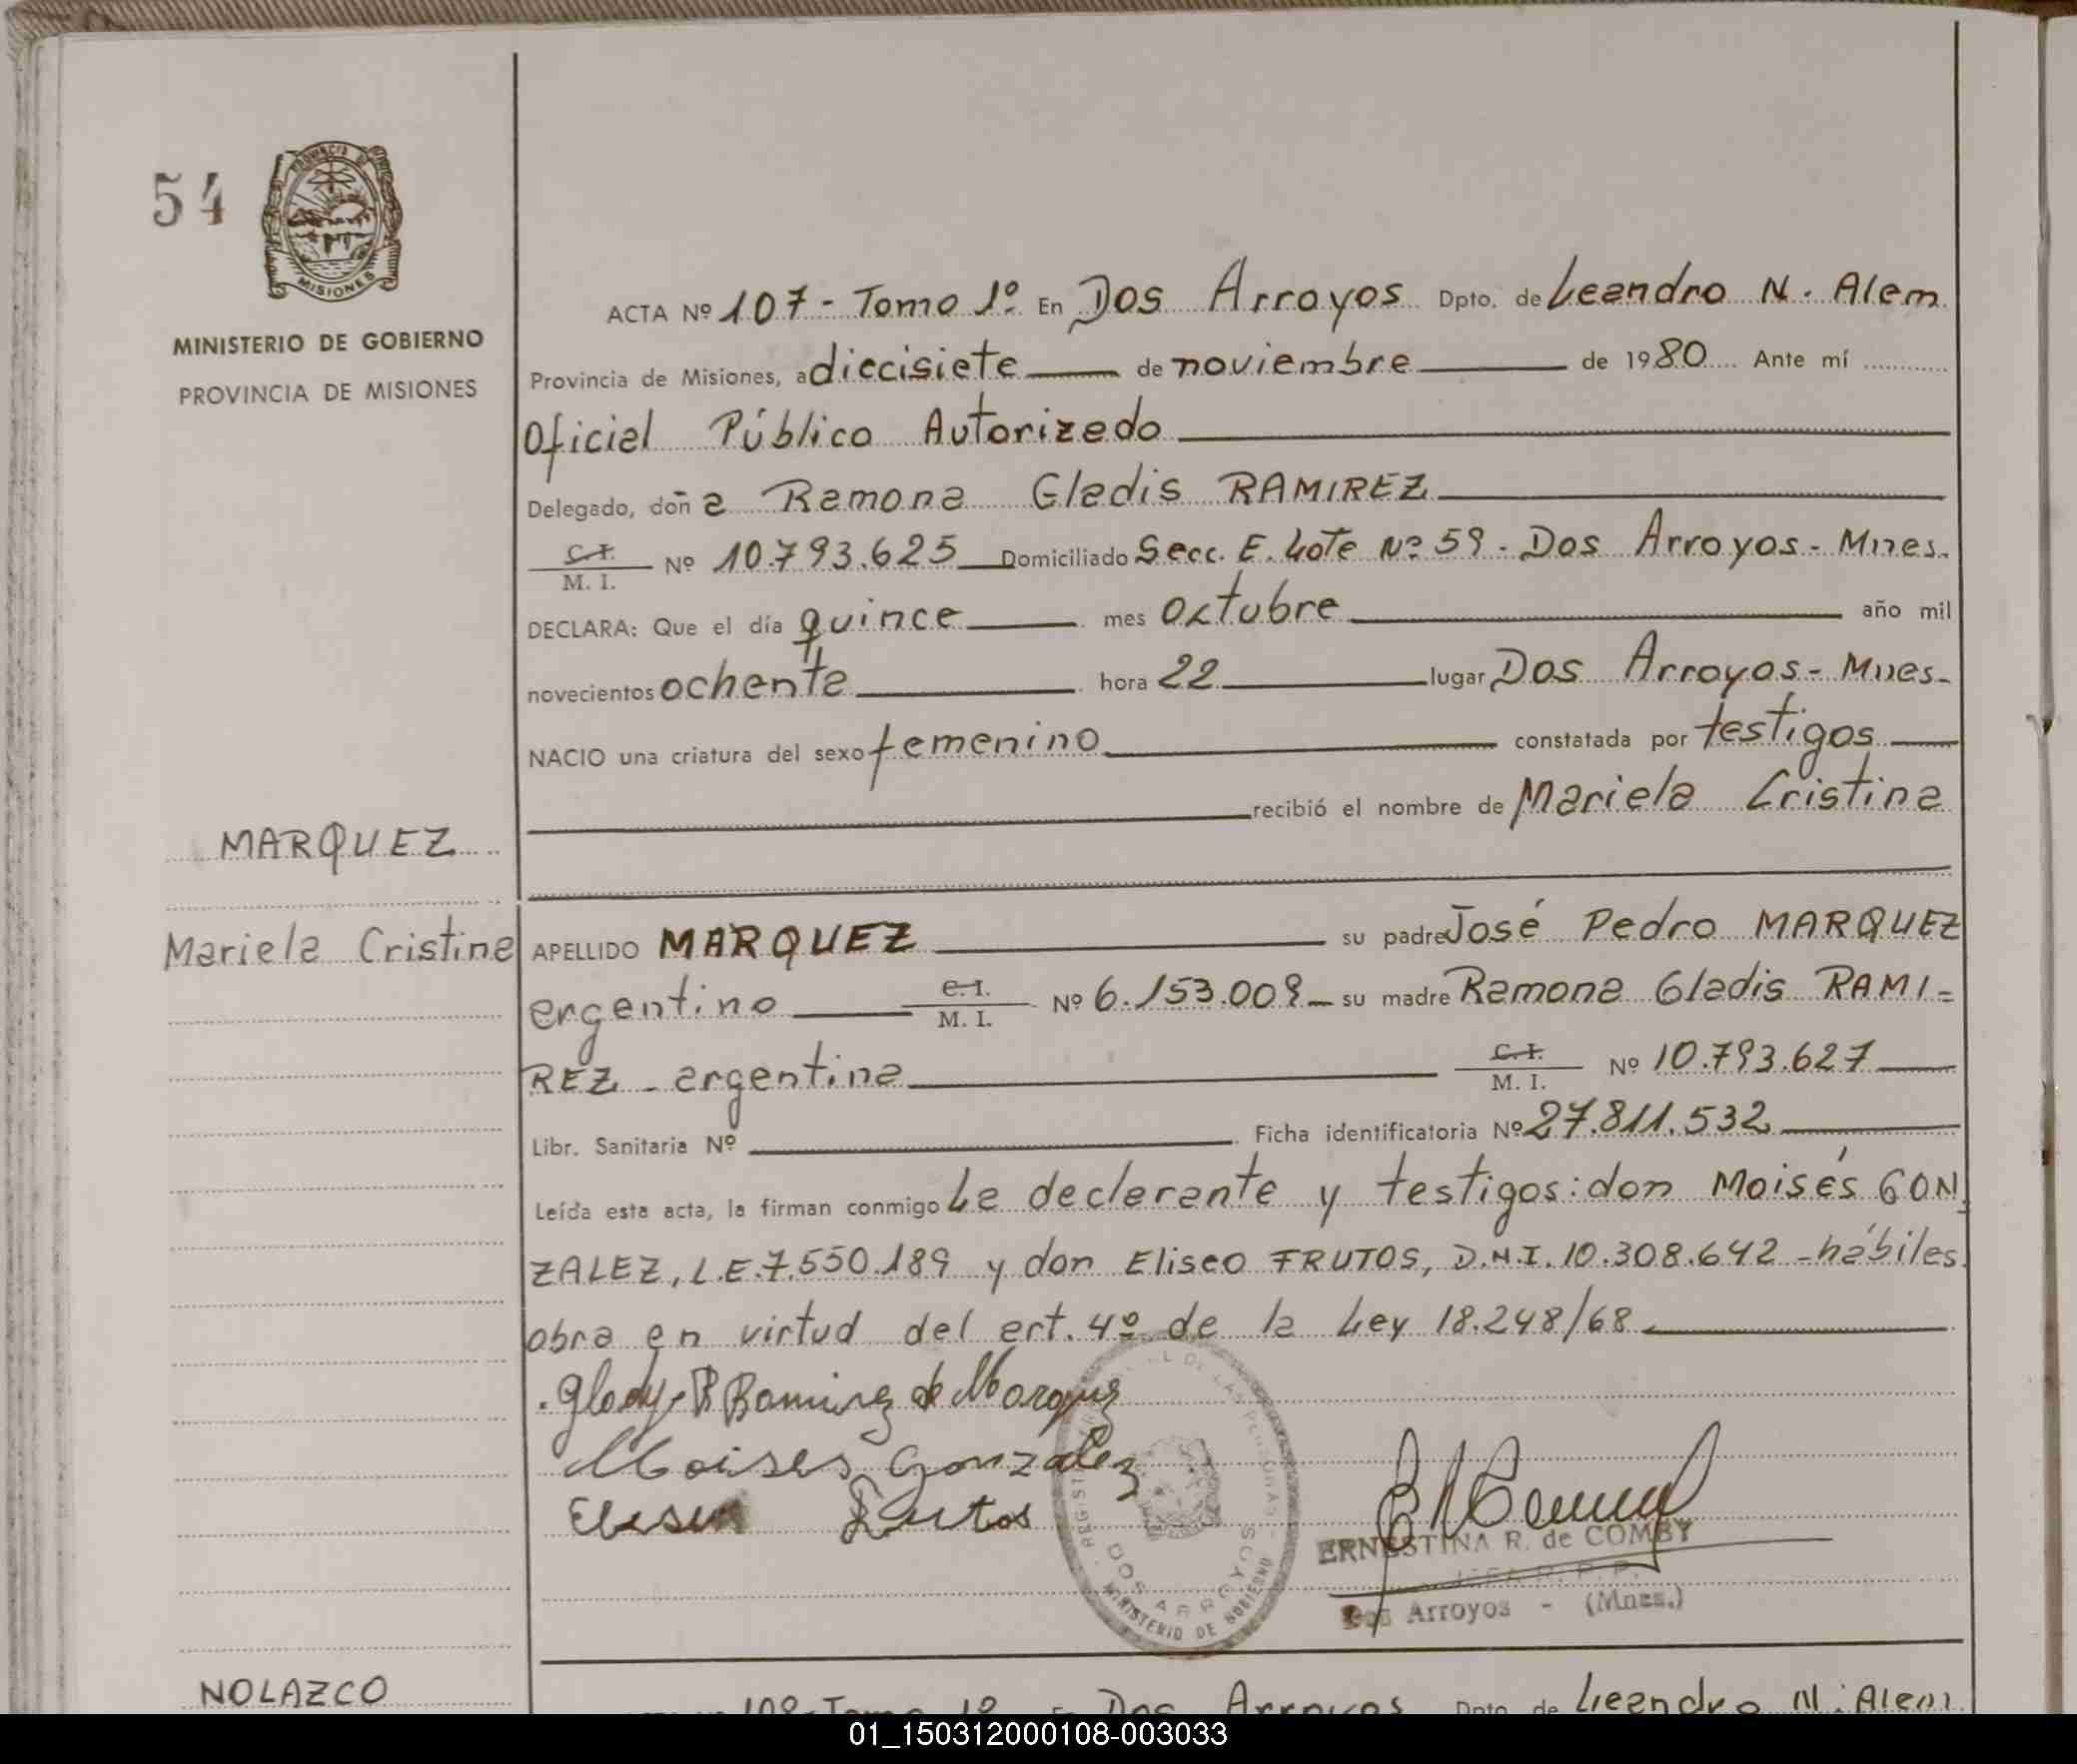 54
PROVINCIA DE
MISIONES
MINISTERIO DE GOBIERNO
PROVINCIA DE MISIONES
ACTA Nº 107 - Tomo 1º En Dos Arroyos Dpto. de Leandro N. Alem
Provincia de Misiones, a diecisiete de noviembre de 1980 Ante mí
Oficial Público Autorizado
Delegado, doña Ramona Gladis RAMIREZ
C.I. M. I. Nº 10.793.625 Domiciliado Secc. E. Lote Nº 59 - Dos Arroyos - Mnes.
DECLARA: Que el día quince mes octubre año mil
novecientos ochenta hora 22 lugar Dos Arroyos - Mnes-
NACIO una criatura del sexo femenino constatada por testigos
recibió el nombre de Mariela Cristina
MARQUEZ
Mariela Cristina
APELLIDO MARQUEZ su padre José Pedro MARQUEZ
argentino C.I. M. I. Nº 6.153.009 su madre Ramona Gladis RAMI=
REZ - argentina C.I. M. I. Nº 10.793.627
Libr. Sanitaria Nº Ficha identificatoria Nº 27.811.532
Leída esta acta, la firman conmigo La declarante y testigos: don Moisés GON
ZALEZ, L.E. 7.550.189 y don Eliseo FRUTOS, D.N.I. 10.308.642 - hábiles
obra en virtud del art. 4º de la Ley 18.248/68
Glady R Ramirez de Marquez
Moises Gonzalez
Eliseo Frutos
DOS ARROYOS
MINISTERIO DE GOBIERNO
ERNESTINA R. de COMBY
Dos Arroyos - (Mnes.)
NOLAZCO
108 - Tomo 1º En Dos Arroyos Dpto. de Leandro N. Alem
01_150312000108-003033